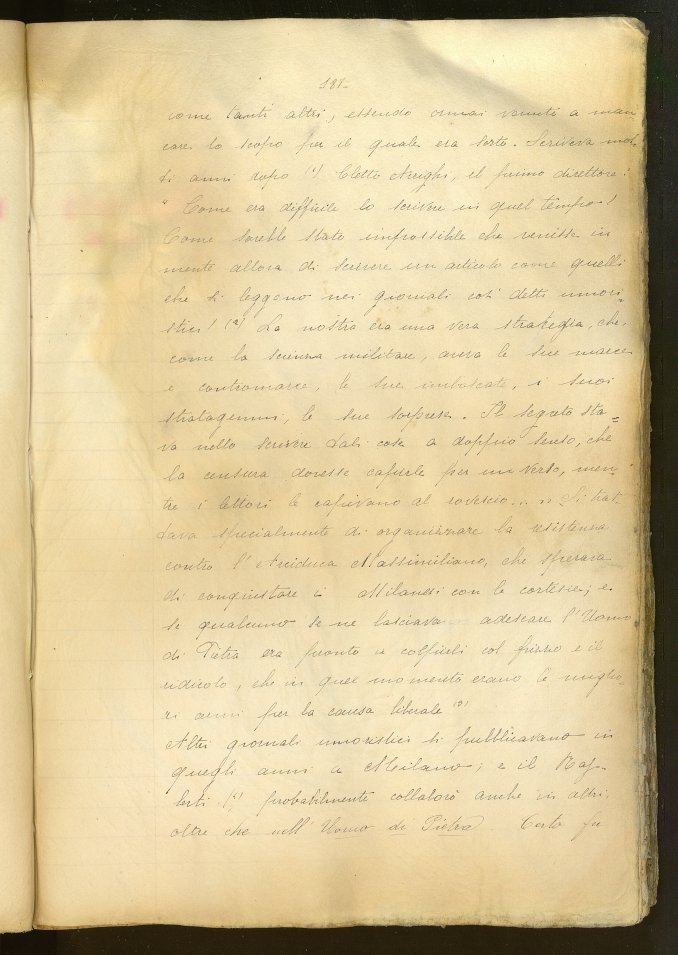 181-
come tanti altri, essendo ormai venuto a man
care lo scopo per il quale era sorto. Scriveva mol
ti anni dopo (1) Cletto Arrighi, il primo direttore:
"Come era difficile lo scrivere in quel tempo!
Come sarebbe stato impossibile che venisse in
mente allora di scrivere un articolo come quelli
che si leggono nei giornali così detti umori-
stici! (2) La nostra era una vera strategia, che,
come la scienza militare, aveva le sue marce
e contromarce, le sue imboscate, i suoi
stratagemmi, le sue sorprese. Il segreto sta=
va nello scrivere tali cose a doppio senso, che
la censura dovesse capirle per un verso, men-
tre i lettori le capivano al rovescio... " Si trat-
tava specialmente di organizzare la resistenza
contro l'Arciduca Massimiliano, che sperava
di conquistare i Milanesi con le cortesie; e
se qualcuno se ne lasciava adescare l'Uomo
di Pietra era pronto a colpirli col frizzo e il
ridicolo, che in quel momento erano le miglio-
ri armi per la causa liberale (3)
Altri giornali umoristici si pubblicavano in
quegli anni a Milano; e il Raj-
berti (4) probabilmente collaborò anche in altri,
oltre che nell'Uomo di Pietra. Certo fu